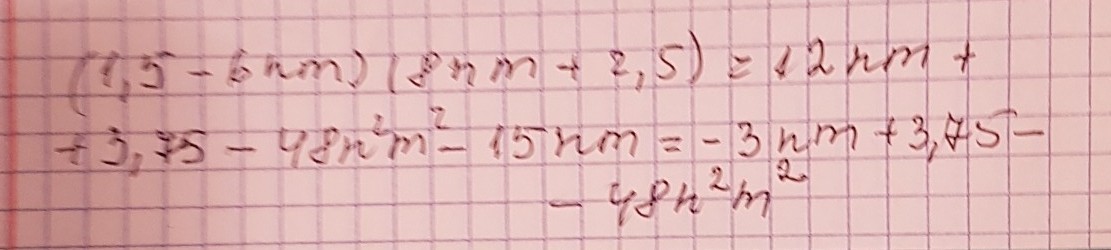 (1,5 - 6nm) (8nm + 2,5) = 12nm +
+ 3,75 - 48n²m² - 15nm = - 3nm + 3,75 -
- 48n²m²